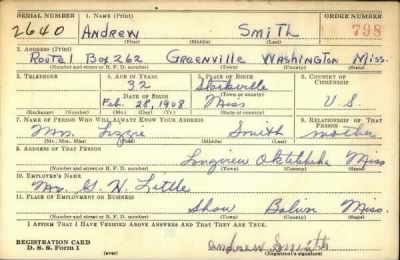 SERIAL NUMBER 1. NAME (Print) ORDER NUMBER
2640 Andrew Smith 798
(First) (Middle) (Last)
2. ADDRESS (Print)
Route 1 Box 262 Greenville Washington Miss.
(Number and street or R. F. D. number) (Town) (County) (State)
3. TELEPHONE 4. AGE IN YEARS 5. PLACE OF BIRTH 6. COUNTRY OF CITIZENSHIP
32 Starkville
DATE OF BIRTH (Town or county)
Feb. 28, 1908 Miss U.S.
(Exchange) (Number) (Mo.) (Day) (Yr.) (State or country)
7. NAME OF PERSON WHO WILL ALWAYS KNOW YOUR ADDRESS 8. RELATIONSHIP OF THAT PERSON
Mrs. Lizzie Smith mother
(Mr., Mrs., Miss) (First) (Middle) (Last)
9. ADDRESS OF THAT PERSON
Longview Oktibbeha Miss
(Number and street or R. F. D. number) (Town) (County) (State)
10. EMPLOYER'S NAME
Mr. G. W. Little
11. PLACE OF EMPLOYMENT OR BUSINESS
Shaw Bolivar Miss.
(Number and street or R. F. D. number) (Town) (County) (State)
I AFFIRM THAT I HAVE VERIFIED ABOVE ANSWERS AND THAT THEY ARE TRUE.
REGISTRATION CARD Andrew Smith
D. S. S. Form 1 (over) (Registrant's signature)